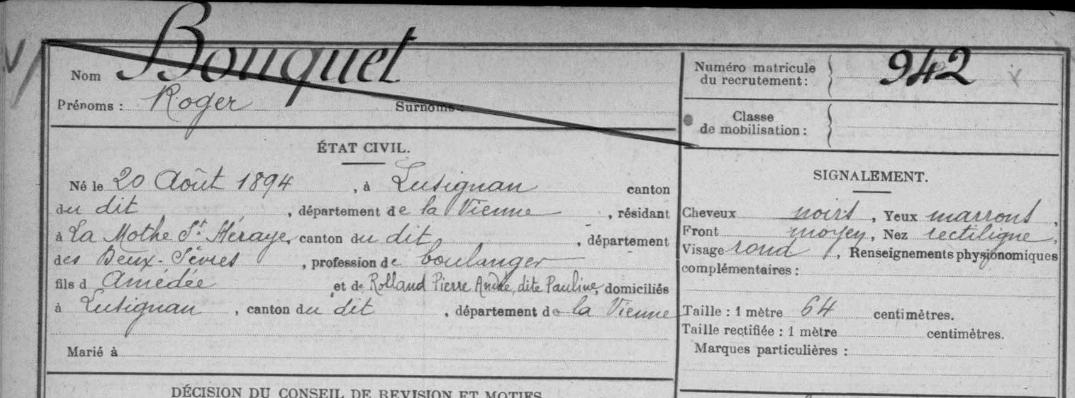 Nom Bouquet
Prénoms : Roger Surnoms :
ÉTAT CIVIL.
Né le 20 Août 1894, à Lusignan canton
du dit, département de la Vienne, résidant
à La Mothe St Héraye, canton du dit, département
des Deux-Sèvres, profession de boulanger
fils d Amédée et de Rolland Pierre André, dite Pauline, domiciliés
à Lusignan, canton du dit, département de la Vienne
Marié à
DÉCISION DU CONSEIL DE REVISION ET MOTIFS
Numéro matricule
du recrutement : 942
Classe
de mobilisation :
SIGNALEMENT.
Cheveux noirs, Yeux marrons,
Front moyen, Nez rectiligne,
Visage rond, Renseignements physionomiques
complémentaires :
Taille : 1 mètre 64 centimètres.
Taille rectifiée : 1 mètre centimètres.
Marques particulières :